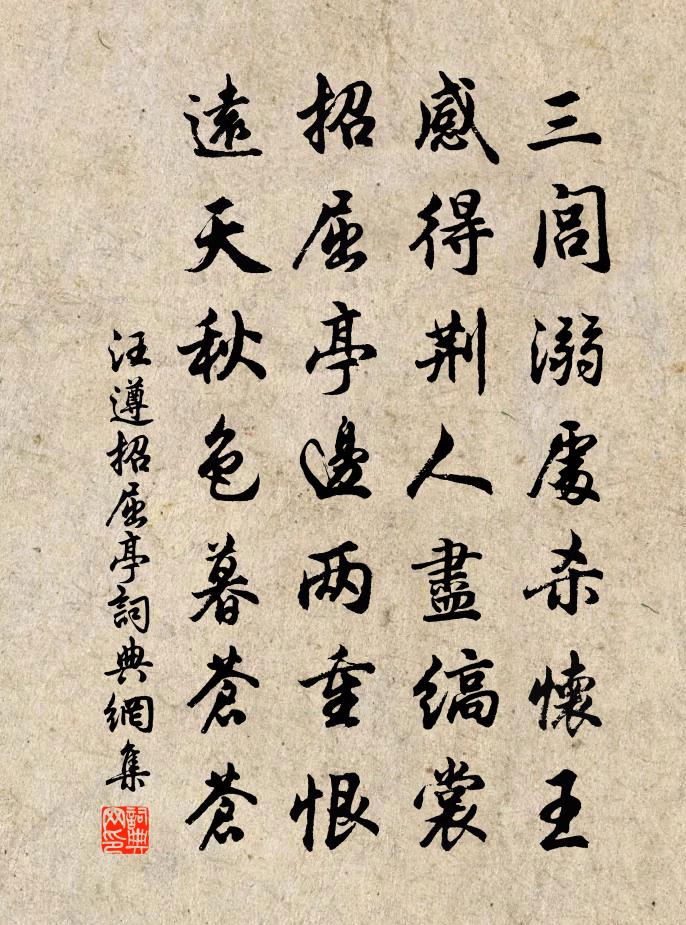 三閭溺處杀懷王
感得荆人盡縞裳
招屈亭邊两重恨
遠天秋色暮蒼蒼
汪遵招屈亭詞典網集
詞典网印